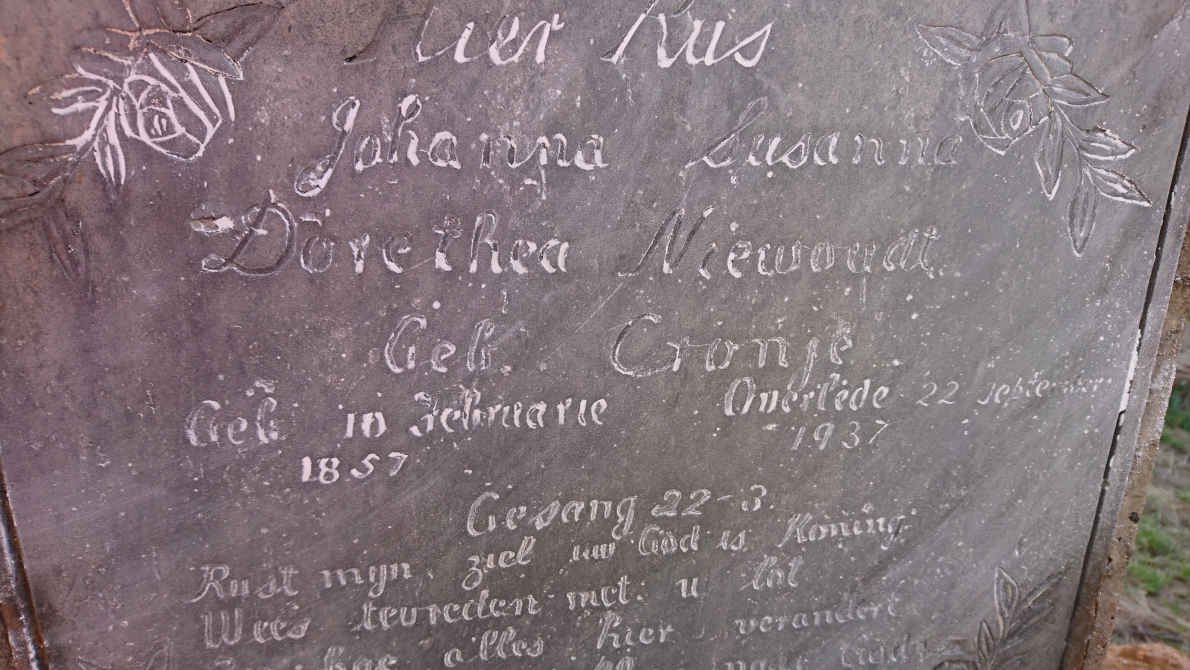 Hier Rus
Johanna Susanna
Dorethea Niewoudt
Geb. Cronje
Geb 10 Februarie Overlede 22 September
1857 1937
Gesang 22-3.
Rust myn ziel uw God is Koning
Wees tevreden met u lot
hoe alles hier verandert